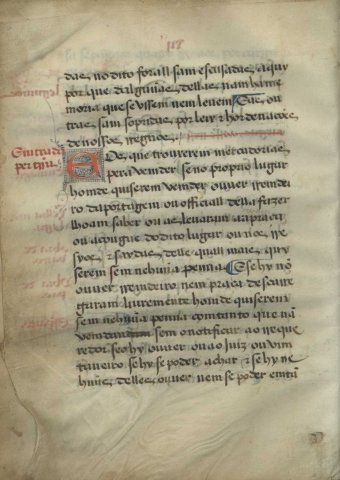 das no dito forall sam escusadas aquy
por que dalguũas dellas nam ha me
moria que se vissem nem levem E as ou
tras sam sopridas por leys e hordenações
de nossos regnos
Emtrada
per terra
E os que trouxerem mercadorias
pera vemder se no proprio lugar
homde quiserem vemder ouver remdei
ro da portagem ou official della fazer
lho am saber ou as levaram aa praça
ou açougue do dito lugar ou nos re
syos e saydas delle quall mais quy
serem sem nehuũa penna E se hy nõ
ouver remdeiro nem praça descarre
garam livremente homde quiserem
sem nehuũa penna comtanto que nã
vemdam sem o notificar ao reque
redor se o hy ouver ou ao juiz ou vim
taneiro se hy se poder achar e se hy ne
huũ delles ouver nem se poder emtã